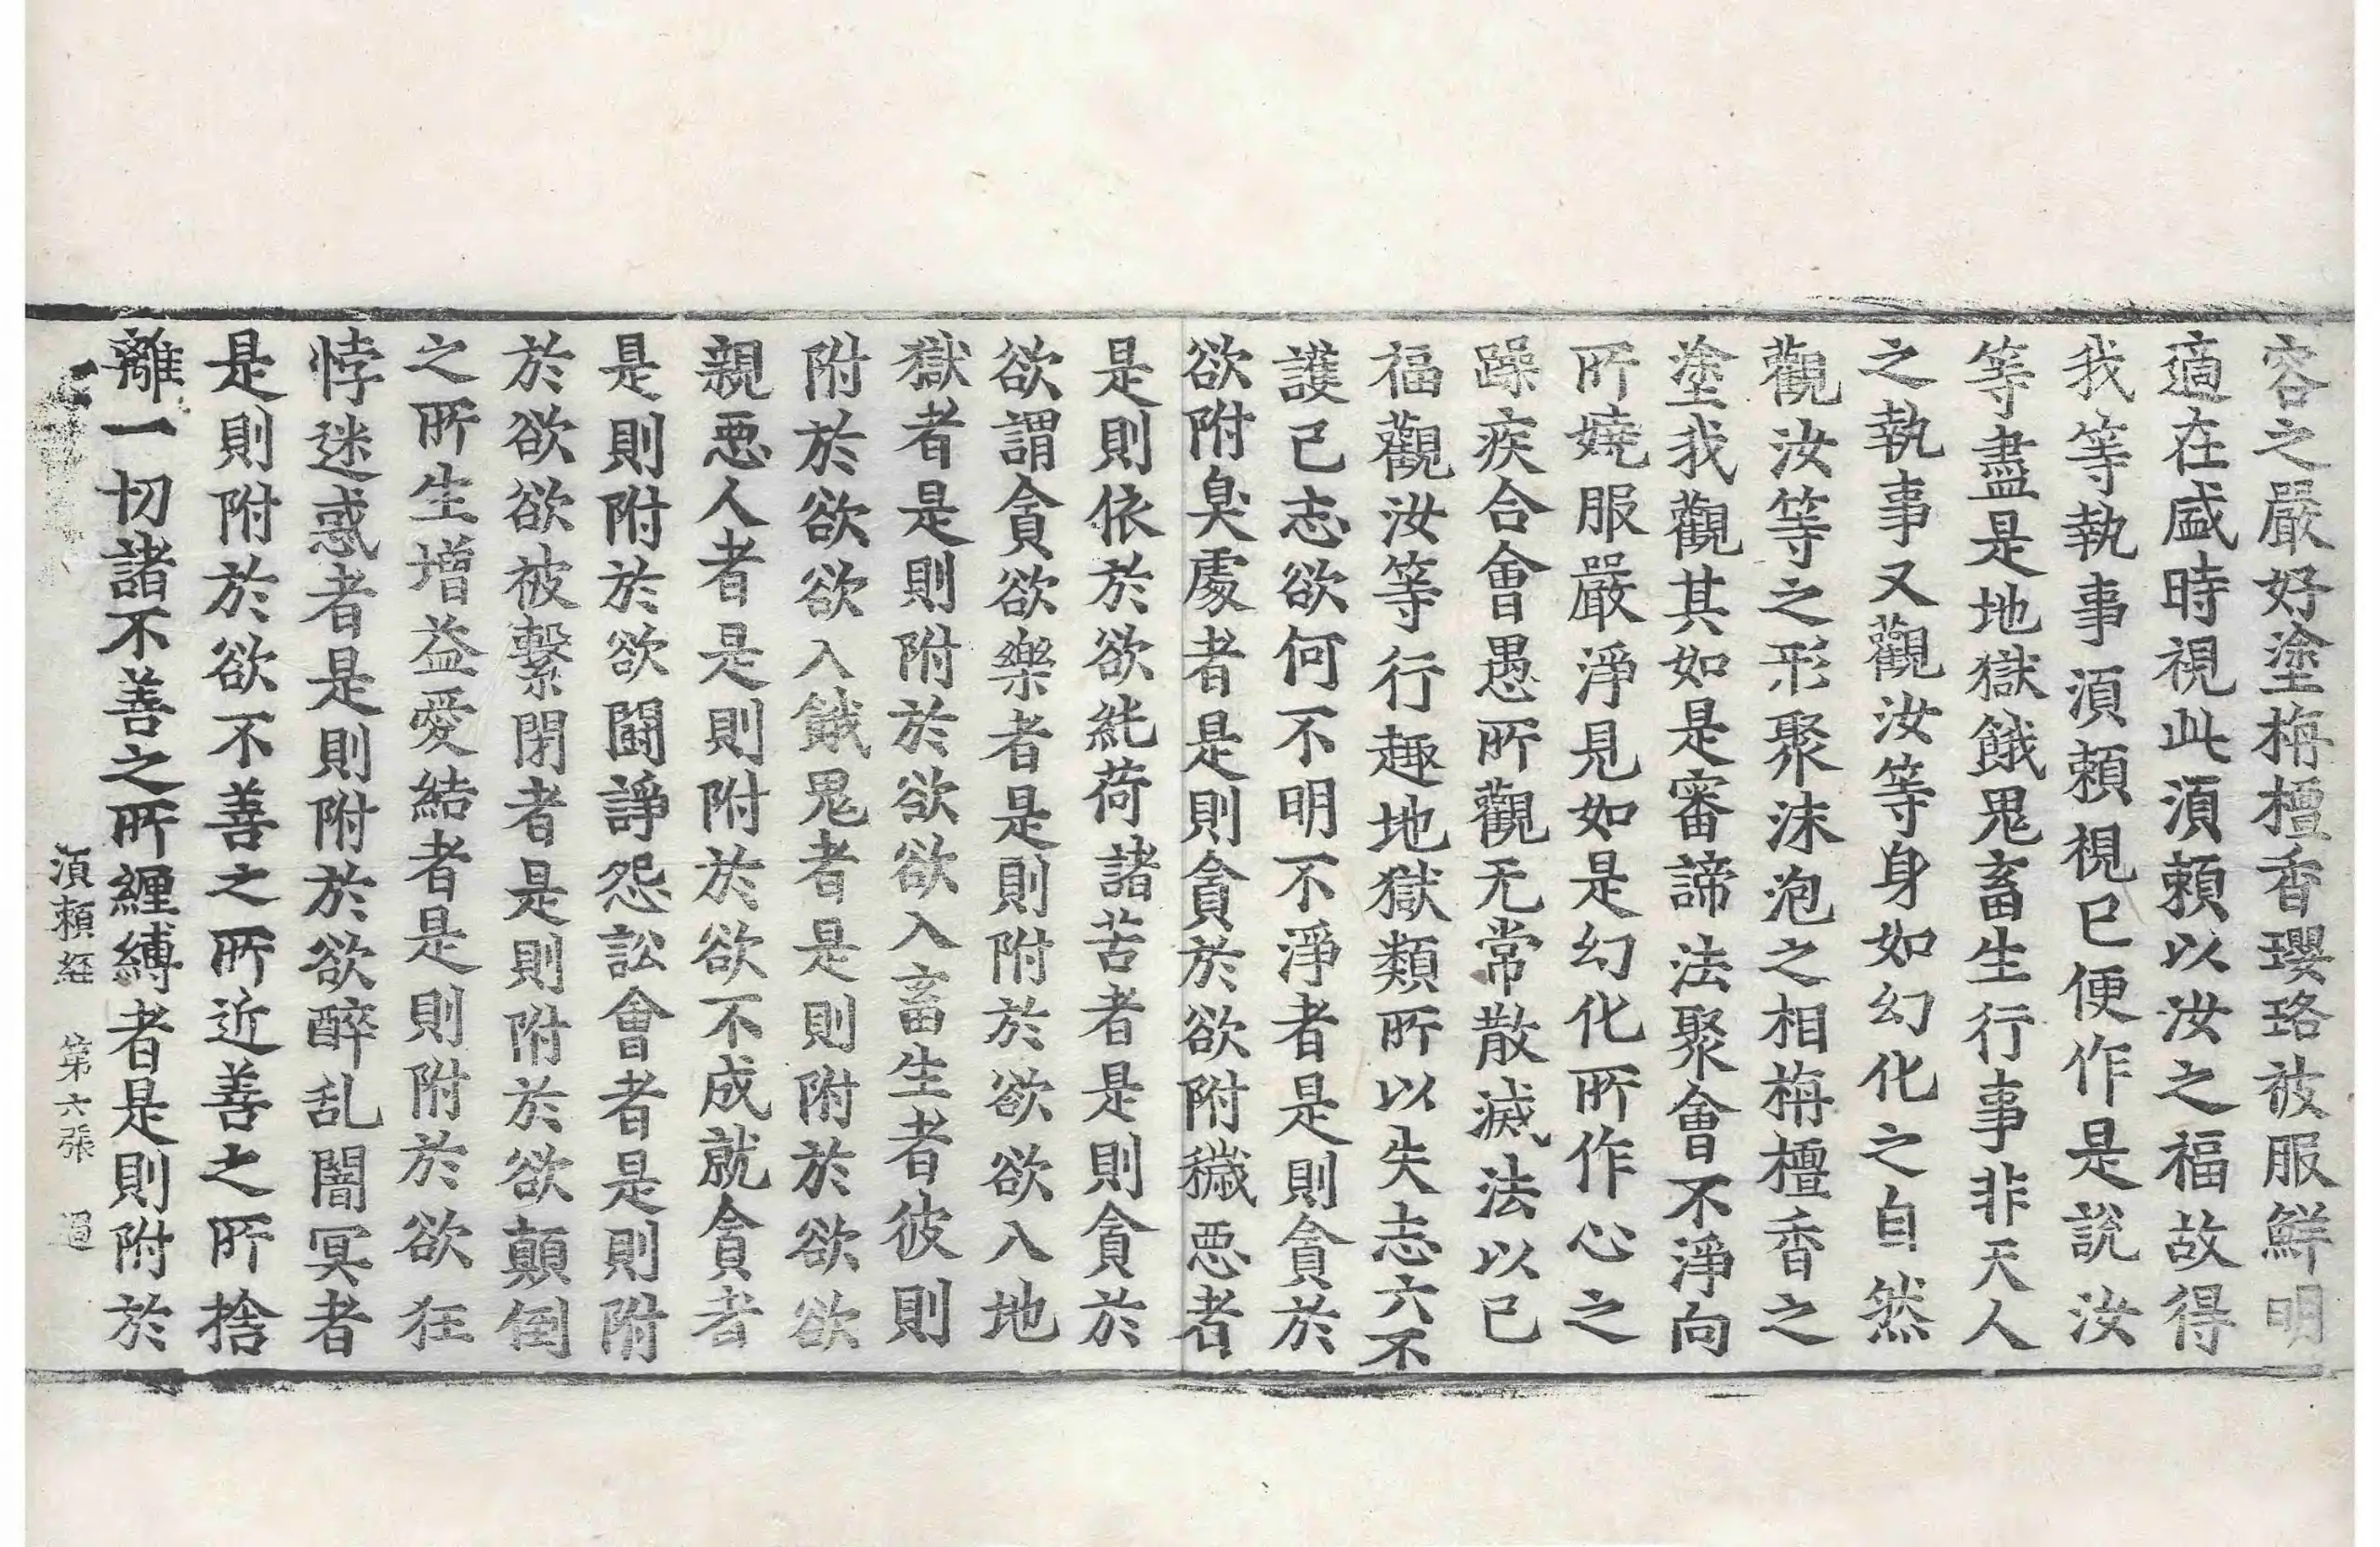 容之嚴好塗栴檀香瓔珞被服鮮明
適在盛時視此湏賴以汝之福故得
我等執事湏賴視已便作是說汝
等盡是地獄餓鬼畜生行事非天人
之執事又觀汝等身如幻化之自然
觀汝等之形聚沫泡之相栴檀香之
塗我觀其如是審諦法聚會不淨向
所嬈服嚴淨見如是幻化所作心之
躁疾合會愚所觀无常散滅法以已
福觀汝等行趣地獄類所以失志六不
護己志欲何不明不淨者是則貪於
欲附臭處者是則貪於欲附穢惡者
是則依於欲絓荷諸苦者是則貪於
欲謂貪欲樂者是則附於欲欲入地
獄者是則附於欲欲入畜生者彼則
附於欲欲入餓鬼者是則附於欲欲
親惡人者是則附於欲不成就貪者
是則附於欲鬪諍怨訟會者是則附
於欲欲被繫閉者是則附於欲顛倒
之所生增益愛結者是則附於欲狂
悖迷惑者是則附於欲醉乱闇冥者
是則附於欲不善之所近善之所捨
離一切諸不善之所纏縛者是則附於
湏賴経 第六張 𢌞